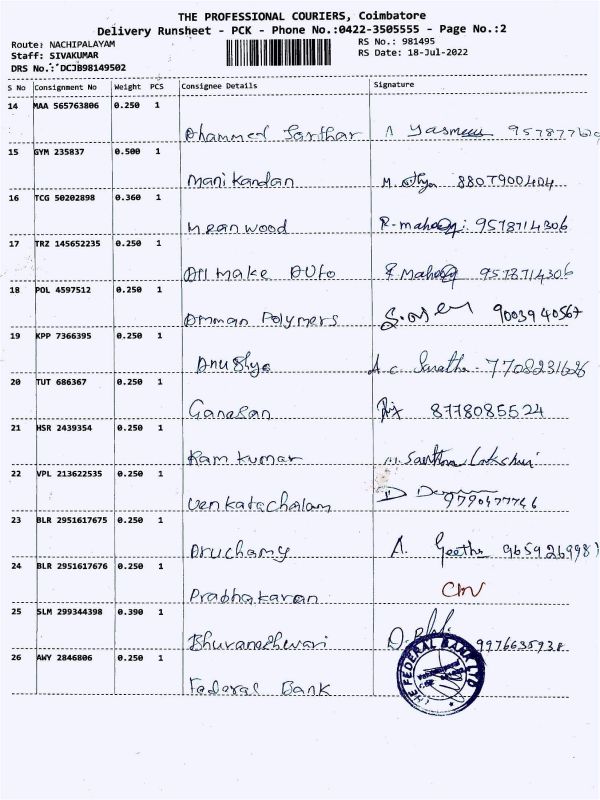 THE PROFESSIONAL COURIERS, Coimbatore
Delivery Runsheet - PCK - Phone No.:0422-3505555 - Page No.:2
Route: NACHIPALAYAM RS No.: 981495
Staff: SIVAKUMAR RS Date: 18-Jul-2022
DRS No.: DCJB98149502
S No Consignment No Weight PCS Consignee Details Signature
14 MAA 565763806 0.250 1
Dhammed Sardhar A Yasmeen
15 GYM 235837 0.500 1
Manikandan M. 8807900404
16 TCG 50202898 0.360 1
Mean wood R. 9578714306
17 TRZ 145652235 0.250 1
All make Auto 9578714306
18 POL 4597512 0.250 1
Amman Polymers 9003940567
19 KPP 7366395 0.250 1
Anushya A.C. 7708231626
20 TUT 686367 0.250 1
Ganesan 8778085524
21 HSR 2439354 0.250 1
Ram kumar M. Santhna Lakshmi
22 VPL 213622535 0.250 1
Venkatachalam D 9790477746
23 BLR 2951617675 0.250 1
Aruchamy A. Geetha 965926998
24 BLR 2951617676 0.250 1
Prabhakaran
25 SLM 299344398 0.390 1
Bhuvaneshwari 9976635938
26 AWY 2846806 0.250 1
Federal Bank THE FEDERAL BANK LTD